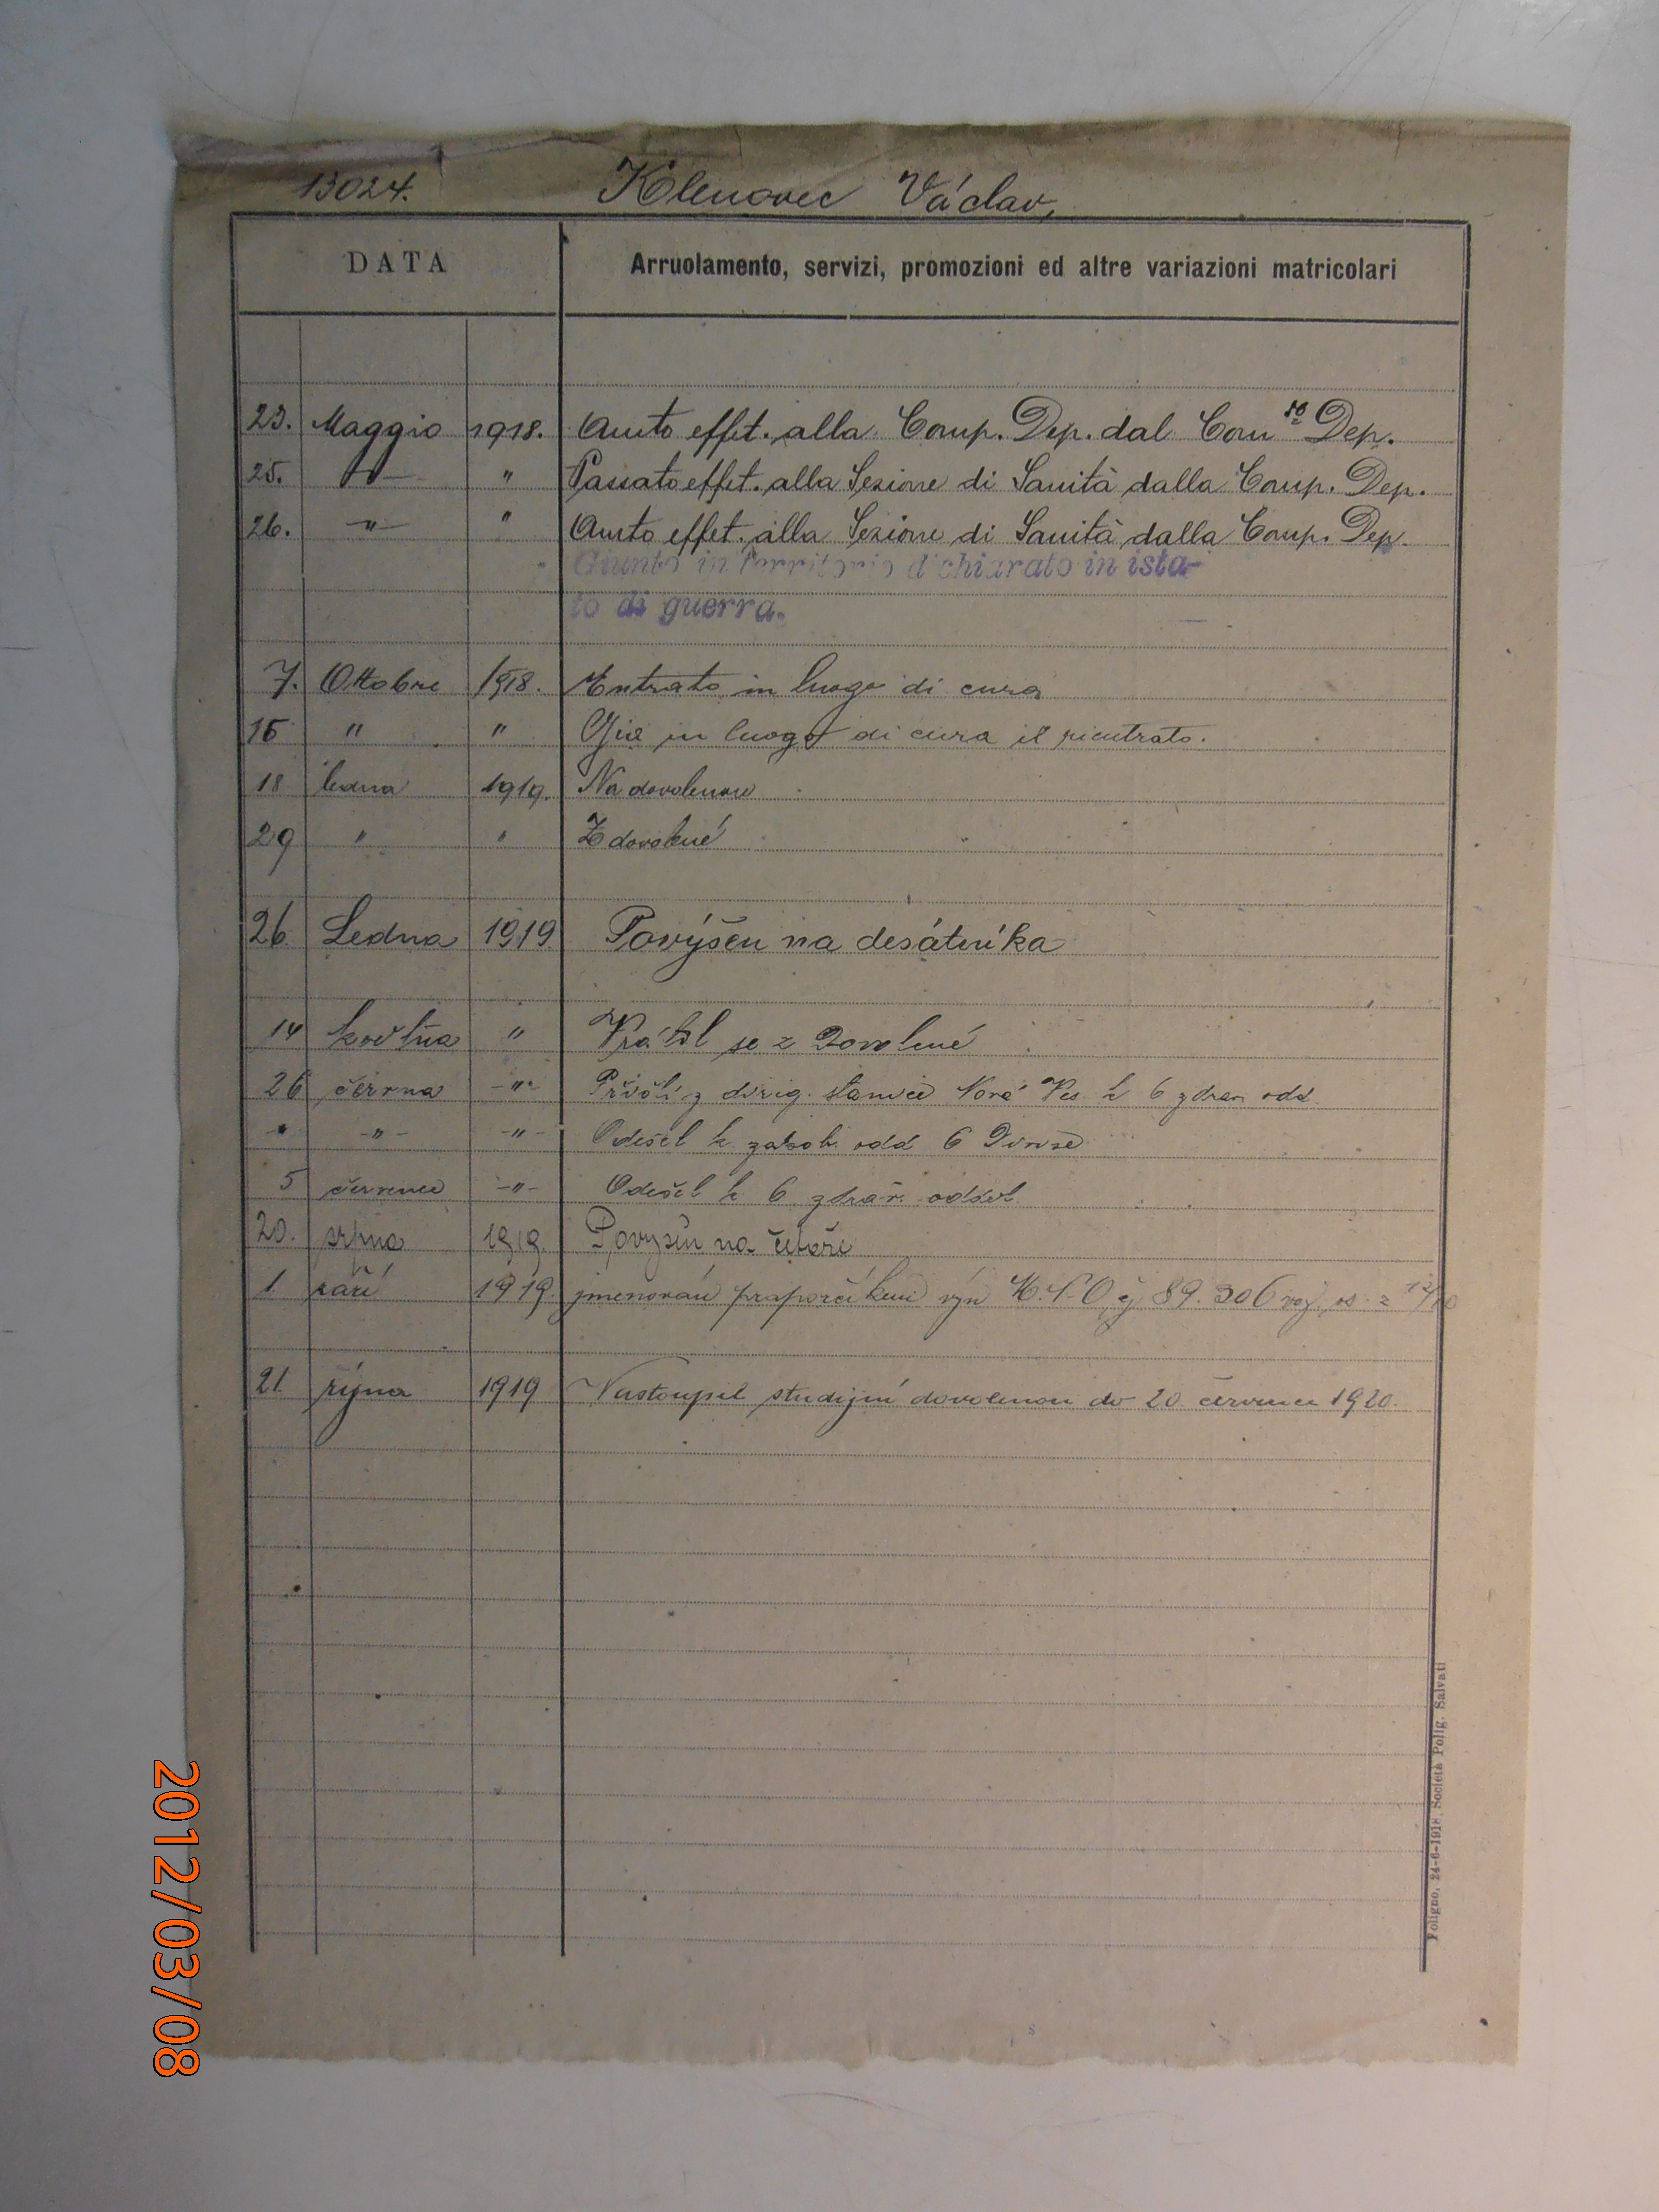 13024. Klenovec Václav,
DATA Arruolamento, servizi, promozioni ed altre variazioni matricolari
23. Maggio 1918. Aunto effet. alla Comp. Dep. dal Com Dep.
25. —"— " Passato effet. alla Sezione di Sanità dalla Comp. Dep.
26. —"— " Aunto effet. alla Sezione di Sanità dalla Comp. Dep.
Giunto in territorio dichiarato in ista-
to di guerra.
7. Ottobre 1918. Entrato in luogo di cura
15 " " in luogo di cura
18 ledna 1919. Na dovolenou
29 " " Z dovolené
26 Ledna 1919 Povýšen na desátníka
14 května " Vrátil se z Dovolené
26 června -"- z stanice Nová Ves k 6 zdrav. odd.
" -"- -"- Odešel k odd 6 Divise
5 července -"- Odešel k 6 zdrav. odděl.
20. srpna 1919. Povýšen na četaře
1. září 1919. jmenován praporčíkem výn M.N.O čj 89.306 voj. os. z
21. října 1919 Nastoupil studijní dovolenou do 20 července 1920.
Foligno, 24-6-1918, Società Polig. Salvati
2012/03/08